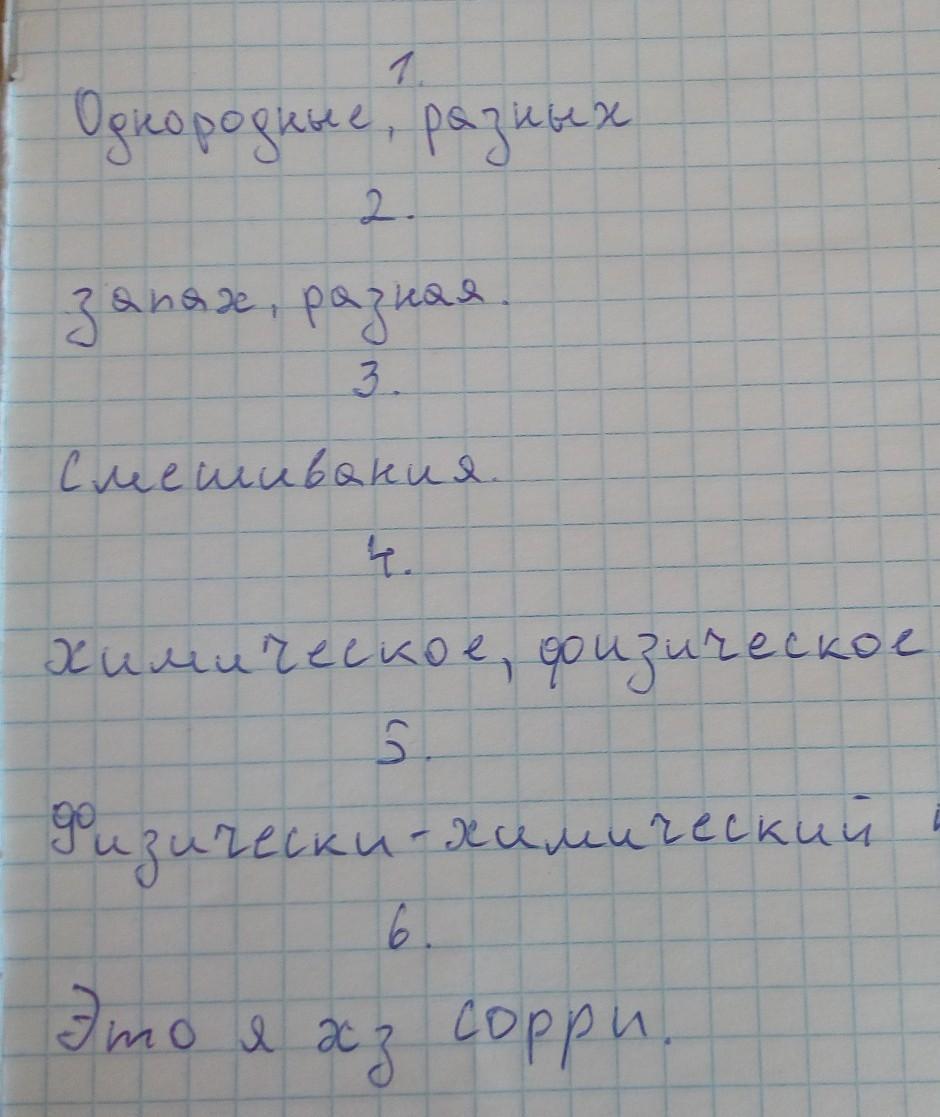 1.
Однородные, разных
2.
запах, разная.
3.
Смешивания.
4.
химическое, физическое
5.
Физически-химический
6.
Это я хз сорри.